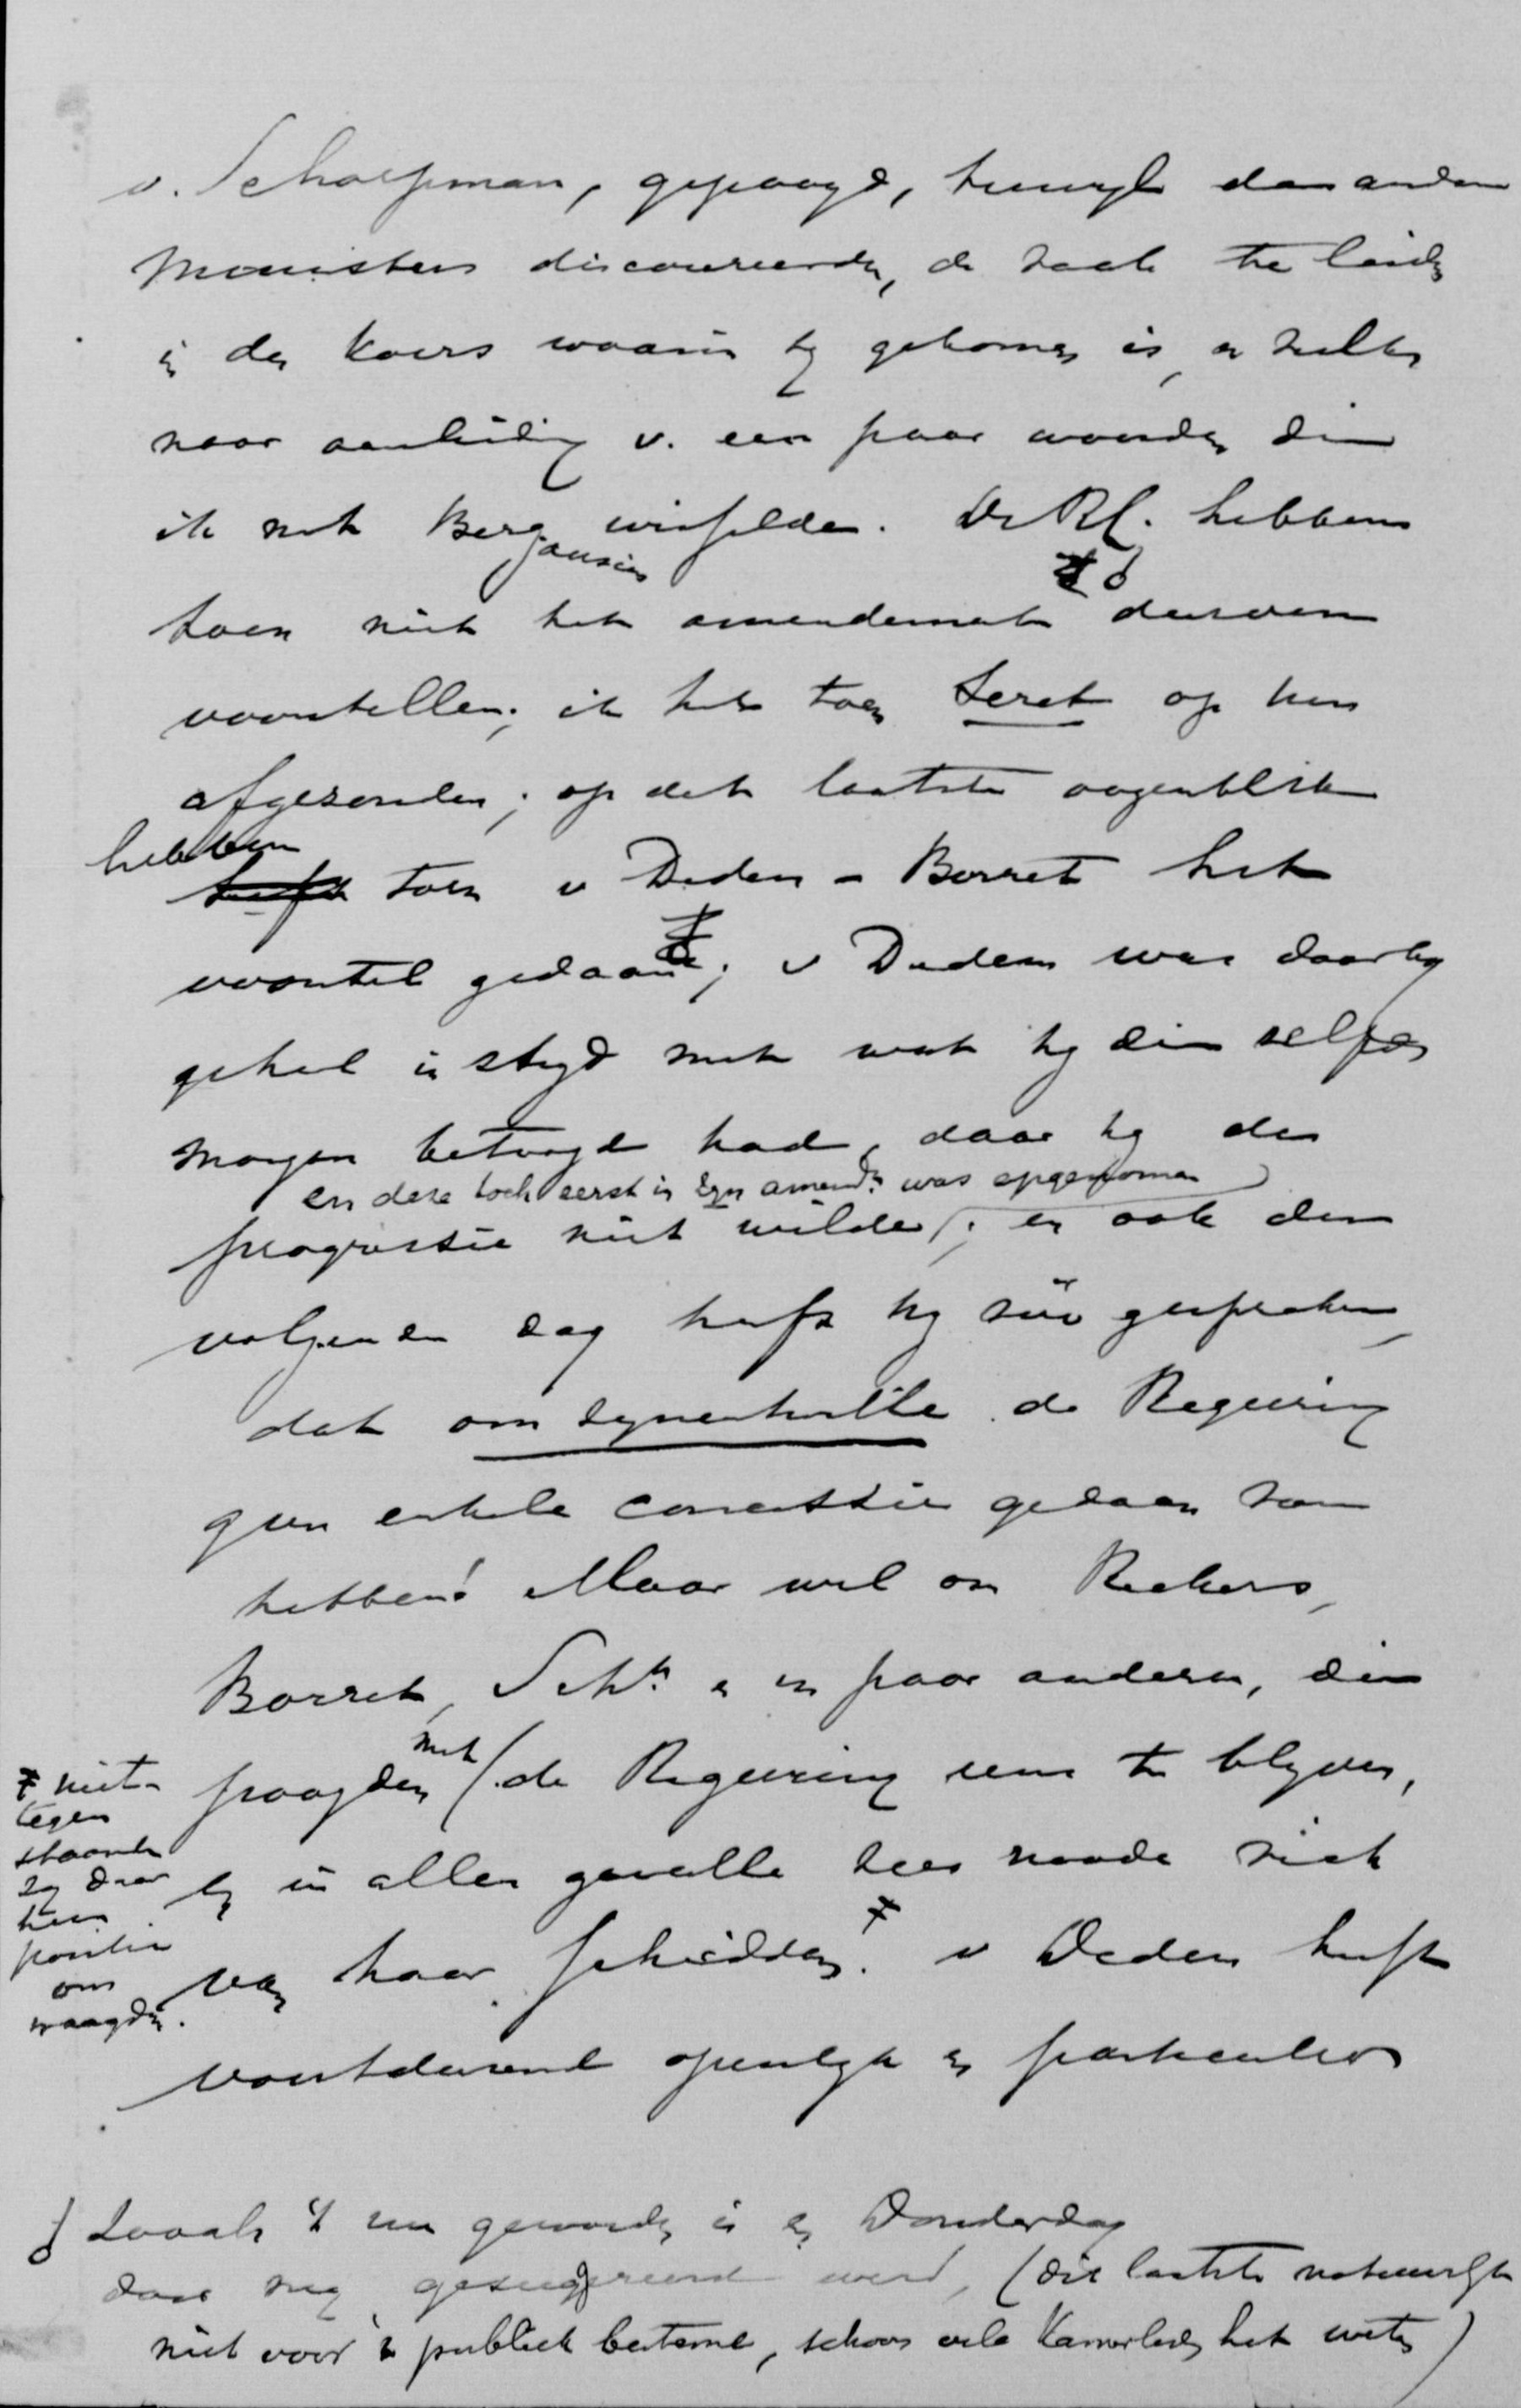 v. Schaepman, gepoogd, terwyl de andere
Ministers discoureerden, de zaak te leiden
in den koers waarin zy gekomen is, en zulks
naar aanleiding v. een paar woorden die
ik met Bergansius wisselde. De RC. hebben
toen niet het amendement ♂ durven
voorstellen; ik heb toen Seret op hen
afgezonden; op het laatste oogenblik
hebben toen v Deden - Borret het
voorstel gedaan; v Dedem was daarby
geheel in stryd met wat hy dien zelfden
morgen betoogd had, daar hy de
progressie niet wilde (en deze toch eerst in zyn amendt. was opgenomen); en ook den
volgenden dag heeft hy zóó gesproken,
dat om zynentwille de Regeering
geen enkele concessie gedaan zou
hebben! Maar wel om Reekers,
Borret, Schn. en een paar anderen, die
poogden met de Regeering eens te blyven,
en in allen gevalle zeer noode zich
van haar scheidden ≠. v Dedem heeft
voortdurend openlyk en particulier
≠ niet-
tegen
staande
zy daar
hun
positie
om
waagden.
♂ zooals 't nu geworden is en Donderdag
door my gesuggereerd werd, (dit laatste natuurlyk
niet voor 't publiek bestemd, schoon vele Kamerleden het weten)